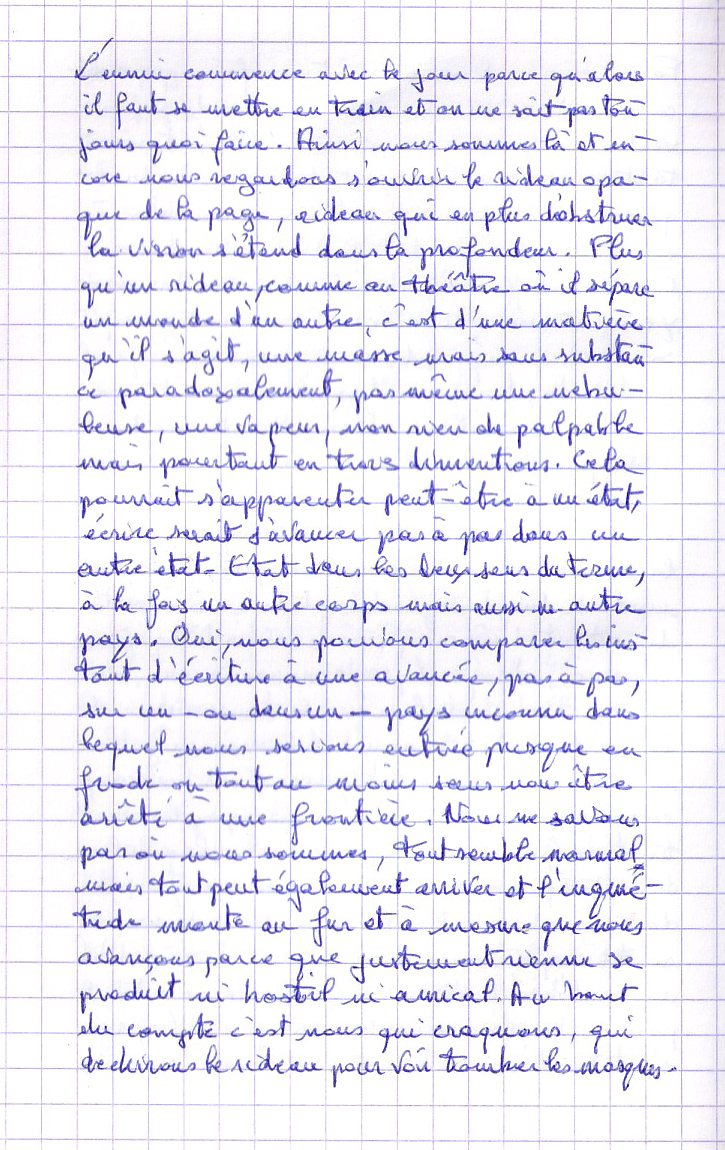 L'ennui commence avec le jour parce qu'alors
il faut se mettre en train et on ne sait pas tou
jours quoi faire. Ainsi nous sommes là et en-
core nous regardons s'ouvrir le rideau opa-
que de la page, rideau qui en plus d'obstruer
la vision s'étend dans la profondeur. Plus
qu'un rideau, comme au théâtre où il sépare
un monde d'un autre, c'est d'une matière
qu'il s'agit, une masse mais sans substan
ce paradoxalement, pas même une nébu-
leuse, une vapeur, non rien de palpable
mais pourtant en trois dimentions. Cela
pourrait s'apparenter peut-être à un état,
écrire serait s'avancer pas à pas dans un
autre état. Etat dans les deux sens du terme,
à la fois un autre corps mais aussi un autre
pays. Oui, nous pouvons comparer les ins
tant d'écriture à une avancée, pas à pas,
sur un - ou dans un - pays inconnu dans
lequel nous serions entrée presque en
frode ou tout au moins sans nous être
arrêté à une frontière. Nous ne savons
pas où nous sommes, tout semble normal,
mais tout peut également arriver et l'inquié-
tude monte au fur et à mesure que nous
avançons parce que justement rien ne se
produit ni hostil ni amical. Au bout
du compte c'est nous qui craquons, qui
dechirons le rideau pour voir tomber les masques.